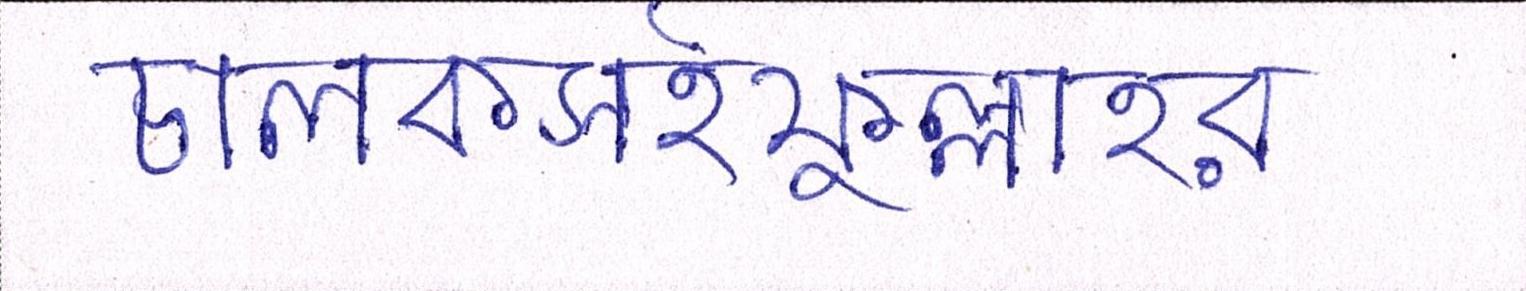 চালকসাইফুল্লাহর